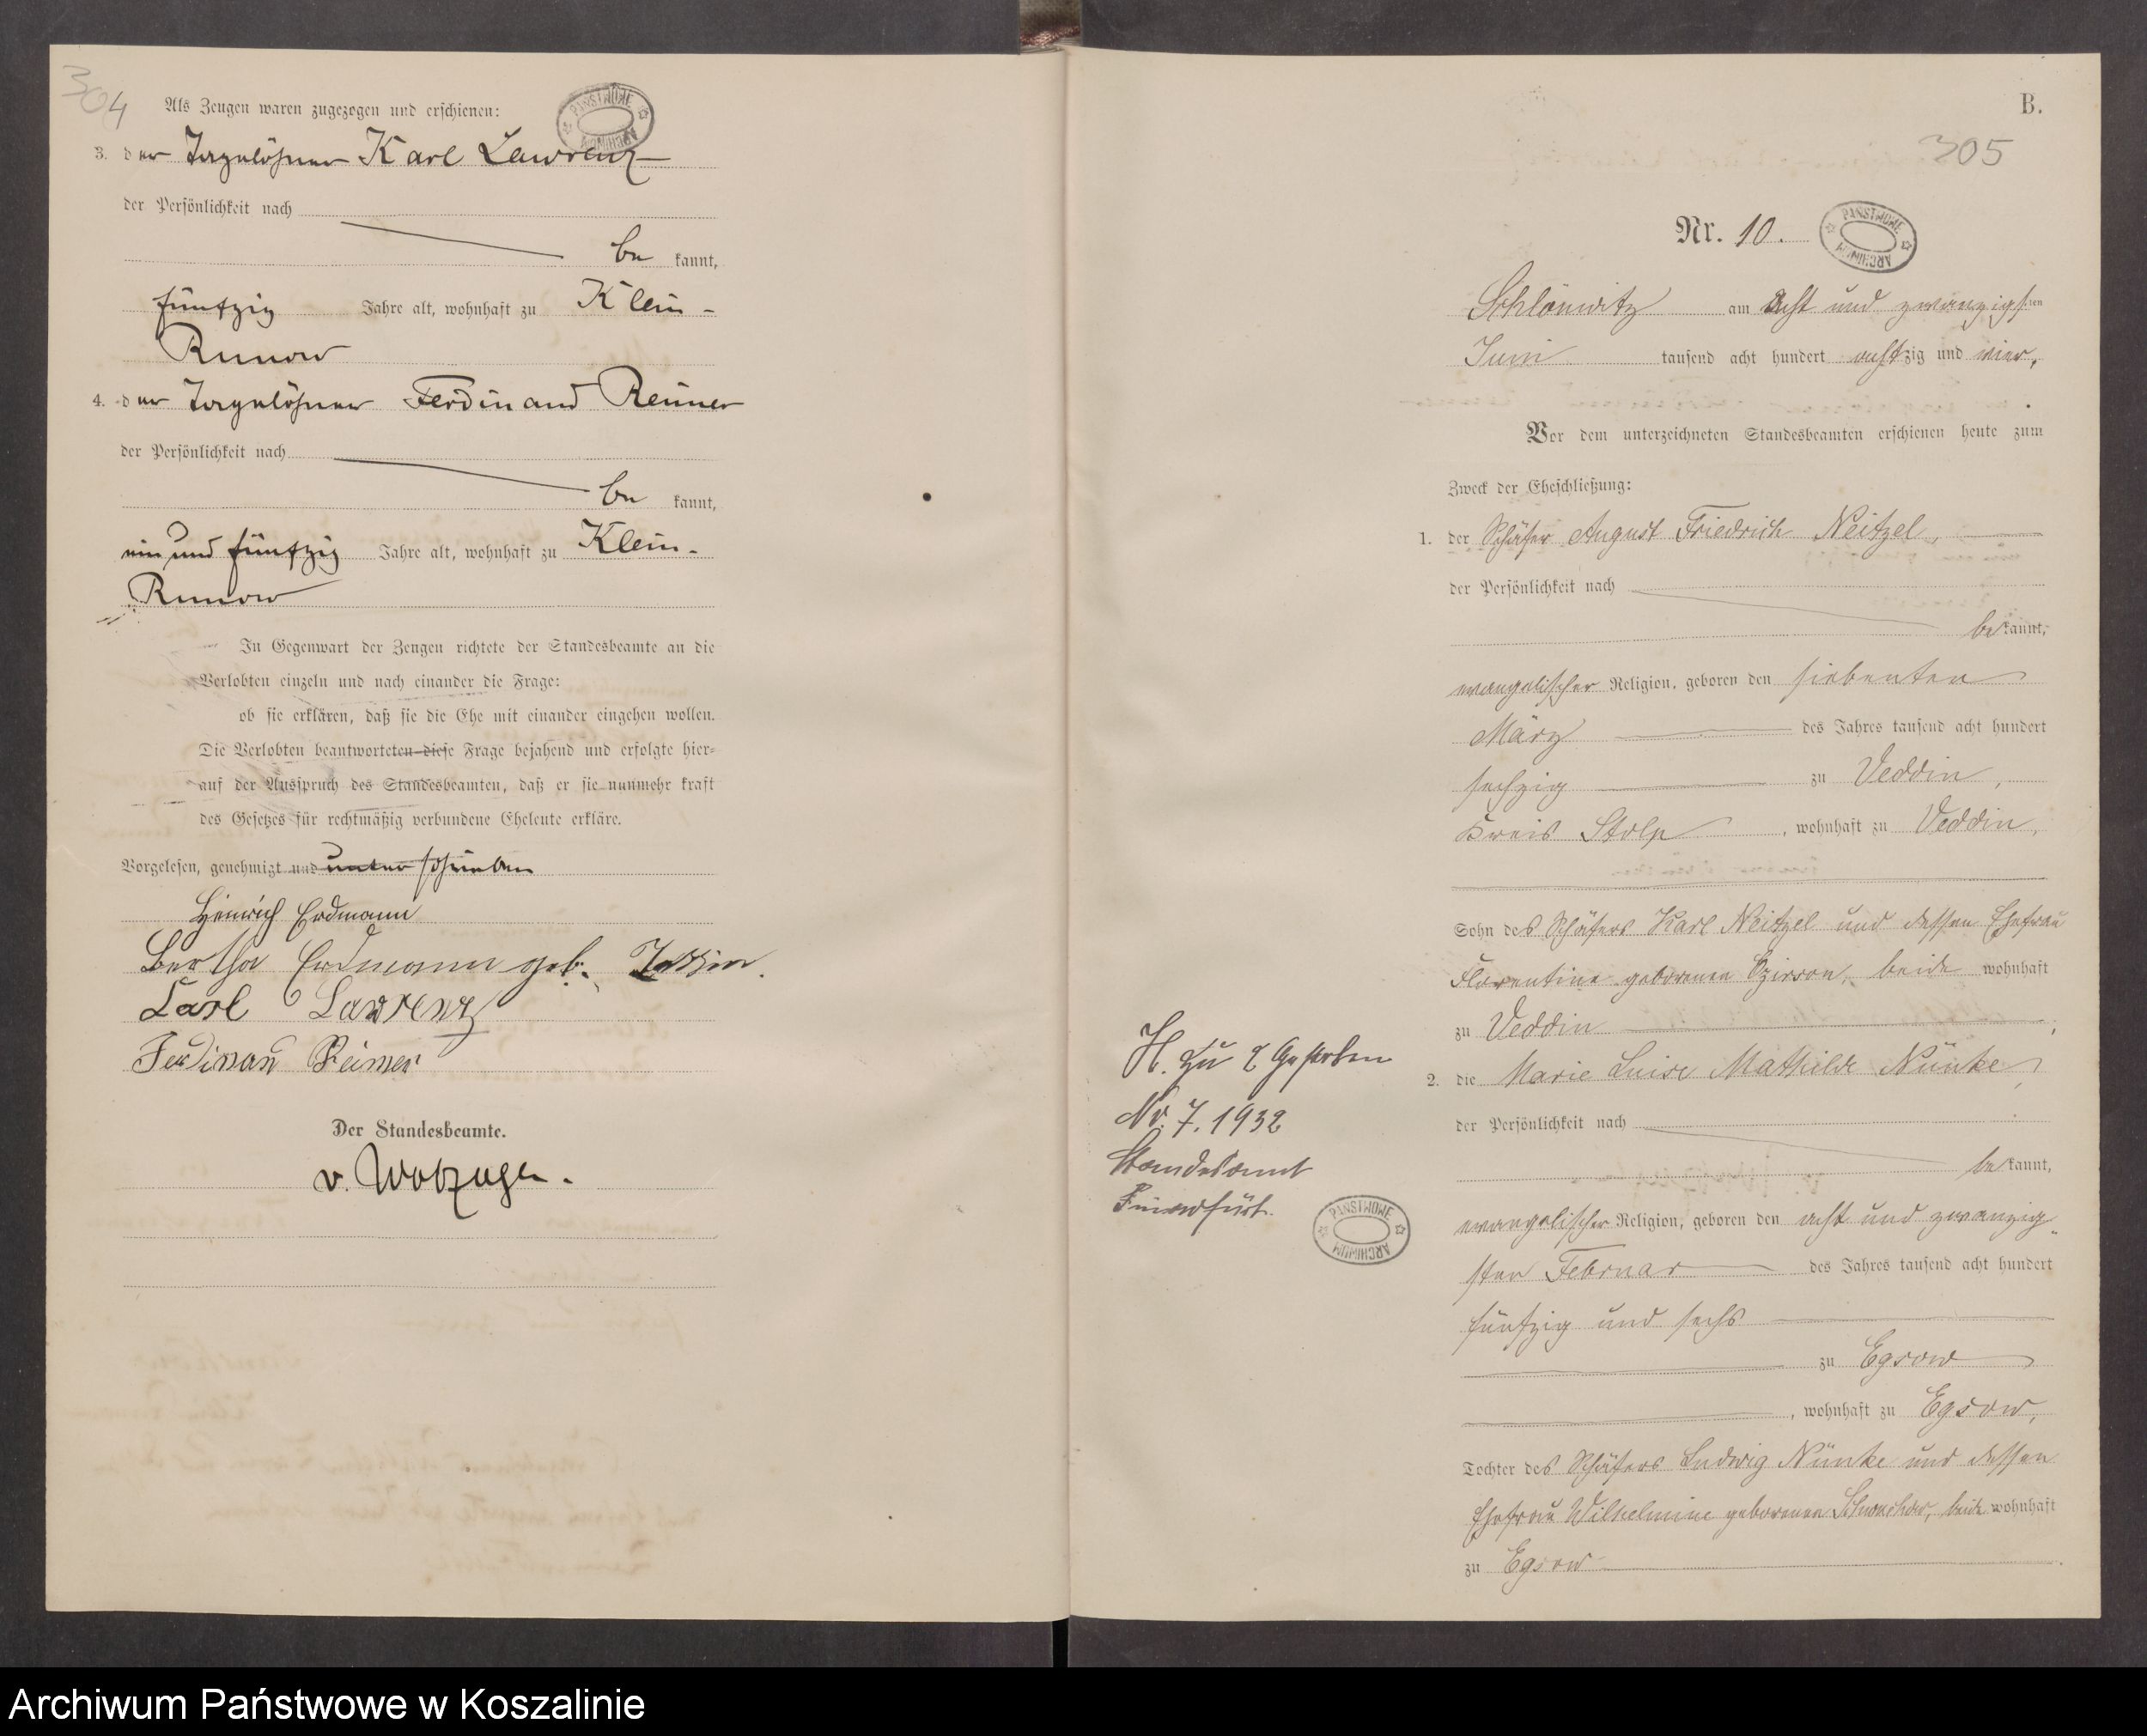 304
Als Zeugen waren zugezogen und erschienen:
PAŃSTWOWE ARCHIWUM
3. der Tagelöhner Karl Lawrenz
der Persönlichkeit nach
be kannt,
fünfzig Jahre alt, wohnhaft zu Klein-
Runow
4. der Tagelöhner Ferdinand Reimer
der Persönlichkeit nach
be kannt,
ein und fünfzig Jahre alt, wohnhaft zu Klein-
Runow
In Gegenwart der Zeugen richtete der Standesbeamte an die
Verlobten einzeln und nach einander die Frage:
ob sie erklären, daß sie die Ehe mit einander eingehen wollen.
Die Verlobten beantworteten diese Frage bejahend und erfolgte hier-
auf der Ausspruch des Standesbeamten, daß er sie nunmehr kraft
des Gesetzes für rechtmäßig verbundene Eheleute erkläre.
Vorgelesen, genehmigt und unterschrieben
Heinrich Erdmann
Bertha Erdmann geb.
Carl Lawrenz
Ferdinand Reimer
Der Standesbeamte.
v.
B.
305
Nr. 10.
PAŃSTWOWE ARCHIWUM
Schlönwitz am acht und zwanzigsten
Juni tausend acht hundert achtzig und vier,
Vor dem unterzeichneten Standesbeamten erschienen heute zum
Zweck der Eheschließung:
1. der Schäfer August Friedrich Neitzel,
der Persönlichkeit nach
bekannt,
evangelischer Religion, geboren den siebenten
März des Jahres tausend acht hundert
sechzig zu Veddin,
Kreis Stolp, wohnhaft zu Veddin,
Sohn des Schäfers Karl Neitzel und dessen Ehefrau
Florentine geborenen beide wohnhaft
zu Veddin
2. die Marie Luise Mathilde Nünke,
der Persönlichkeit nach
bekannt,
evangelischer Religion, geboren den acht und zwanzig-
sten Februar des Jahres tausend acht hundert
fünfzig und sechs
zu Egsow
, wohnhaft zu Egsow,
Tochter des Schäfers Ludwig Nünke und dessen
Ehefrau Wilhelmine geborenen beide wohnhaft
zu Egsow
H. zu 2 Gestorben
Nr. 7. 1932
Standesamt
PAŃSTWOWE ARCHIWUM
Archiwum Państwowe w Koszalinie